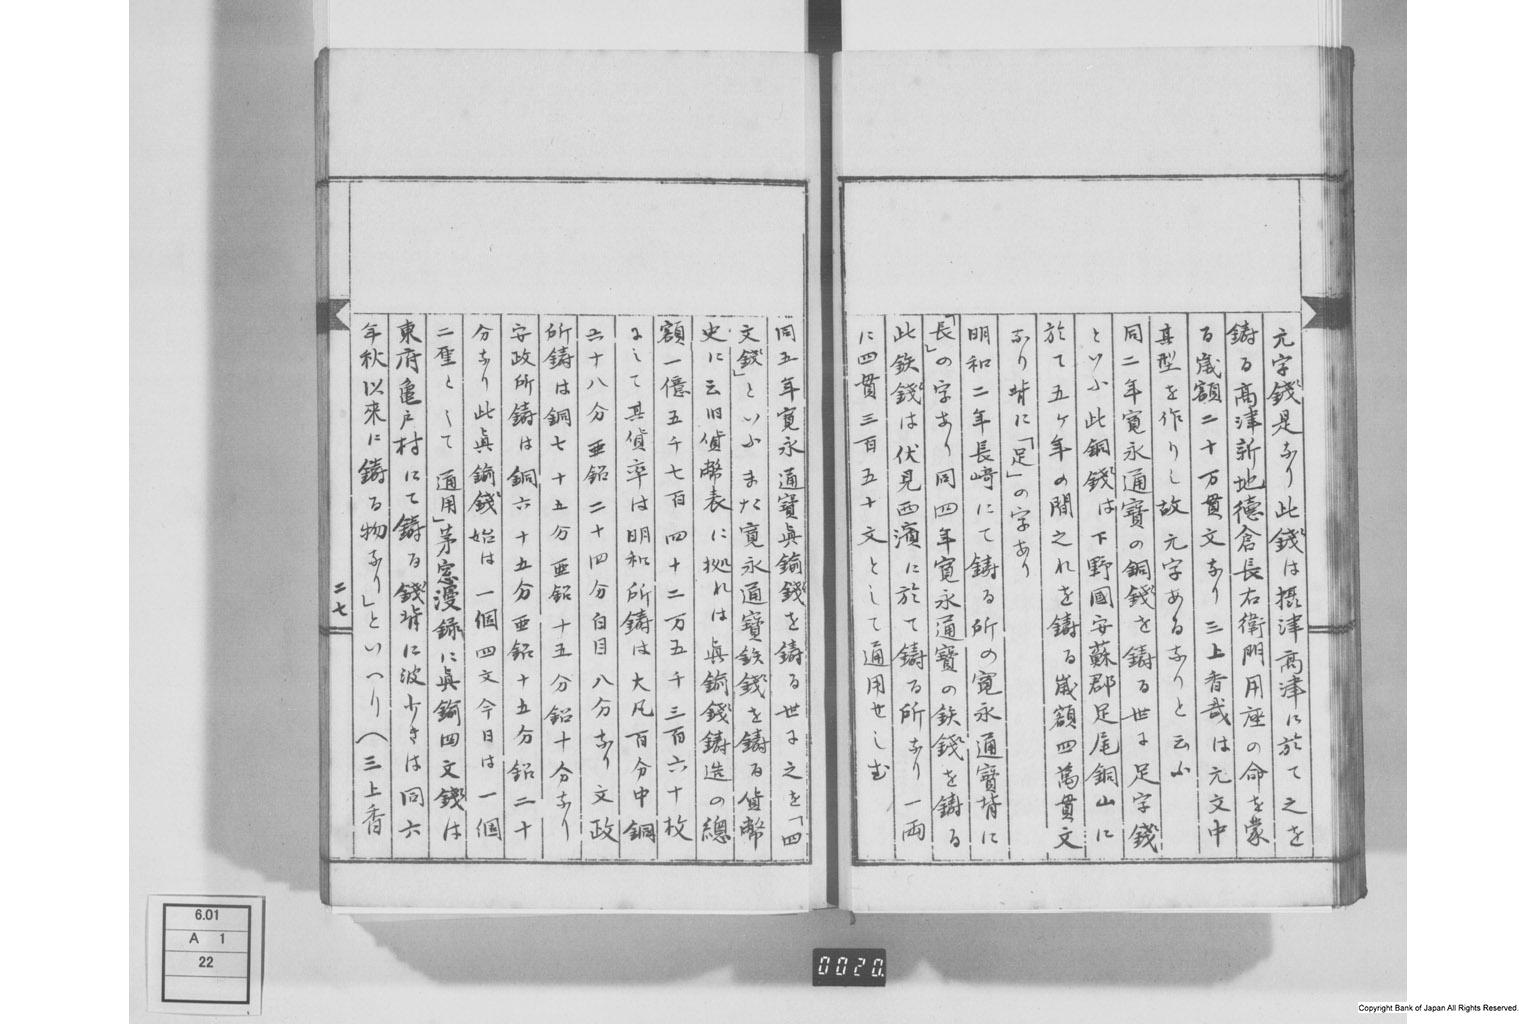 元字錢是なり此錢は摂津高津に於て之を
鋳る高津新地德倉長右衛門用座の命を蒙
る歳額二十万貫文なり三上香哉は元文中
其型を作りし故元字あるなりと云ふ
同二年寛永通寶の銅錢を鋳る世に足字錢
といふ此銅錢は下野國安蘇郡足尾銅山に
於て五ヶ年の間之れを鋳る歳額四萬貫文
なり背に「足」の字あり
明和二年長﨑にて鋳る所の寛永通寶背に
「長」の字あり同四年寛永通寶の鉄錢を鋳る
此鉄錢は伏見西濱に於て鋳る所なり一両
に四貫三百五十文として通用せしむ
同五年寛永通寶眞鍮錢を鋳る世に之を「四
文錢」といふまた寛永通寶鉄錢を鋳る貨幣
史に云旧貨幣表に拠れは眞鍮錢鋳造の總
額一億五千七百四十二万五千三百六十枚
にして其貨率は明和所鋳は大凡百分中銅
六十八分亜鉛二十四分白目八分なり文政
所鋳は銅七十五分亜鉛十五分鉛十分なり
安政所鋳は銅六十五分亜鉛十五分鉛二十
分なり此眞鍮錢始は一個四文今日は一個
二厘として通用」茅窓漫録に眞鍮四文錢は
東府亀戸村にて鋳る錢背に波少きは同六
年秋以来に鋳る物なり」といへり（三上香
二七
6.01
A 1
22
0020.
Copyright Bank of Japan All Rights Reserved.